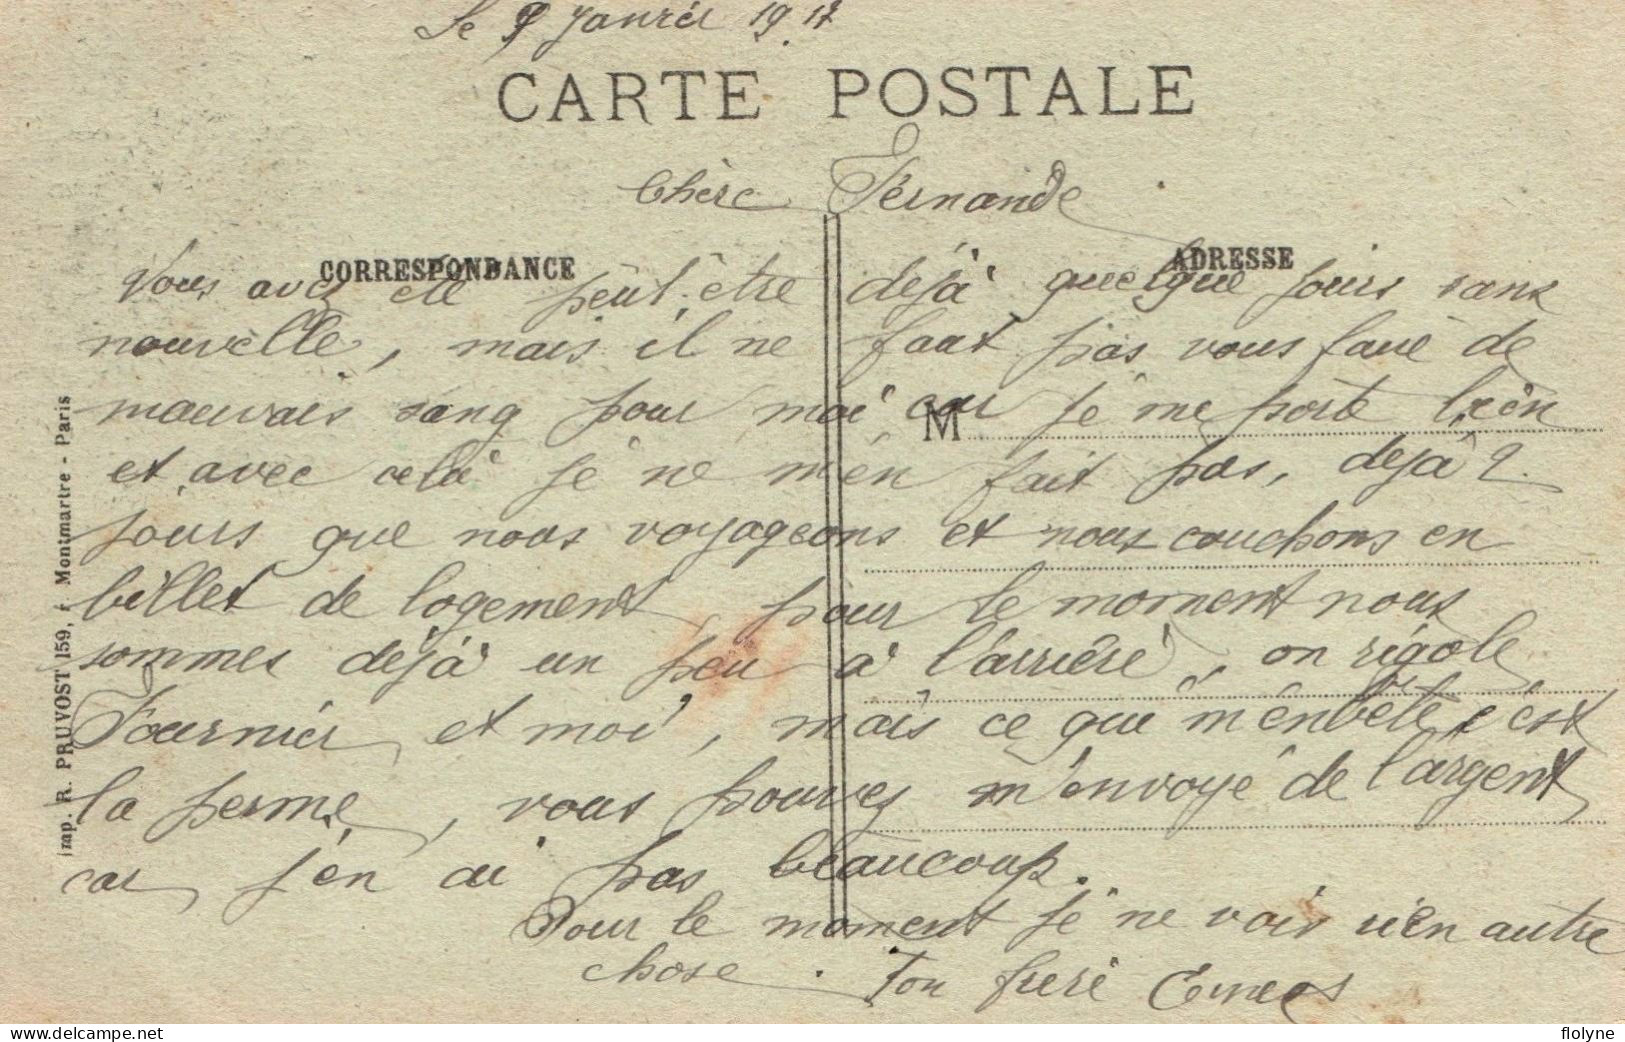 Le 9 Janvier 1917
CARTE POSTALE
Chère Fernande
CORRESPONDANCE
ADRESSE
Vous avez été peut-être déjà quelque jours sans
nouvelle, mais il ne faut pas vous faire de
mauvais sang pour moi, car je me porte bien
M
et avec celà je ne m'en fait pas, dejà 2
jours que nous voyageons et nous couchons en
billet de logement, pour le moment nous
sommes déjà un peu à l'arrière, on rigole
Fournier et moi, mais ce que m'enbete c'est
la perme, vous pouvez m'envoyé de l'argent
car j'en ai pas beaucoup.
Pour le moment je ne vois rien autre
chose. Ton frere
Imp. R. PRUVOST 159, r. Montmartre - Paris
delcampe.net
flolyne